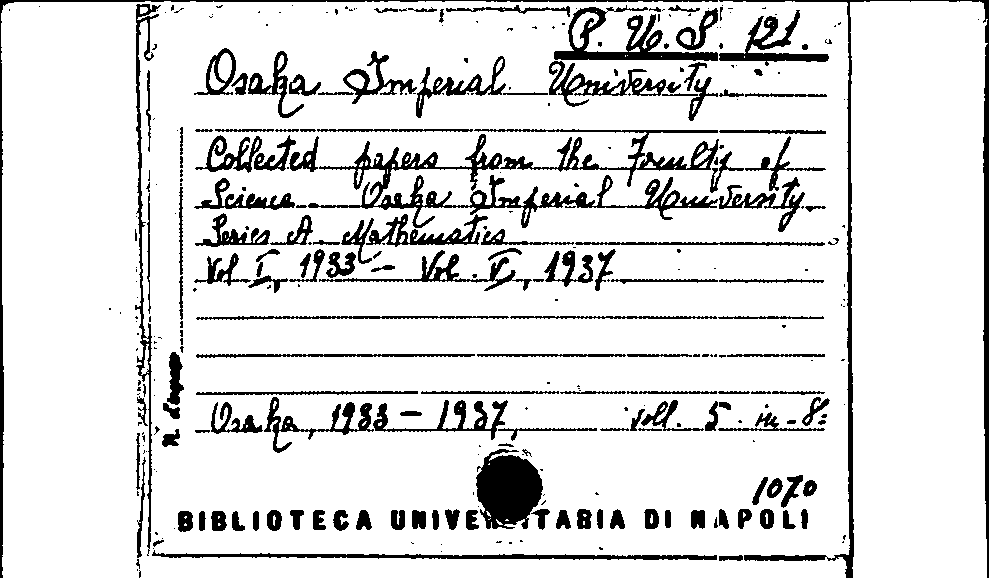 P. U. S. 121.
Osaka Imperial University.
Collected papers from the Faculty of
Science. Osaka Imperial University.
Series A. Mathematics.
Vol I, 1933 – Vol. V, 1937.
N. d'ingresso
Osaka, 1933 – 1937, voll. 5. in-8°
1070
BIBLIOTECA UNIVERSITARIA DI NAPOLI